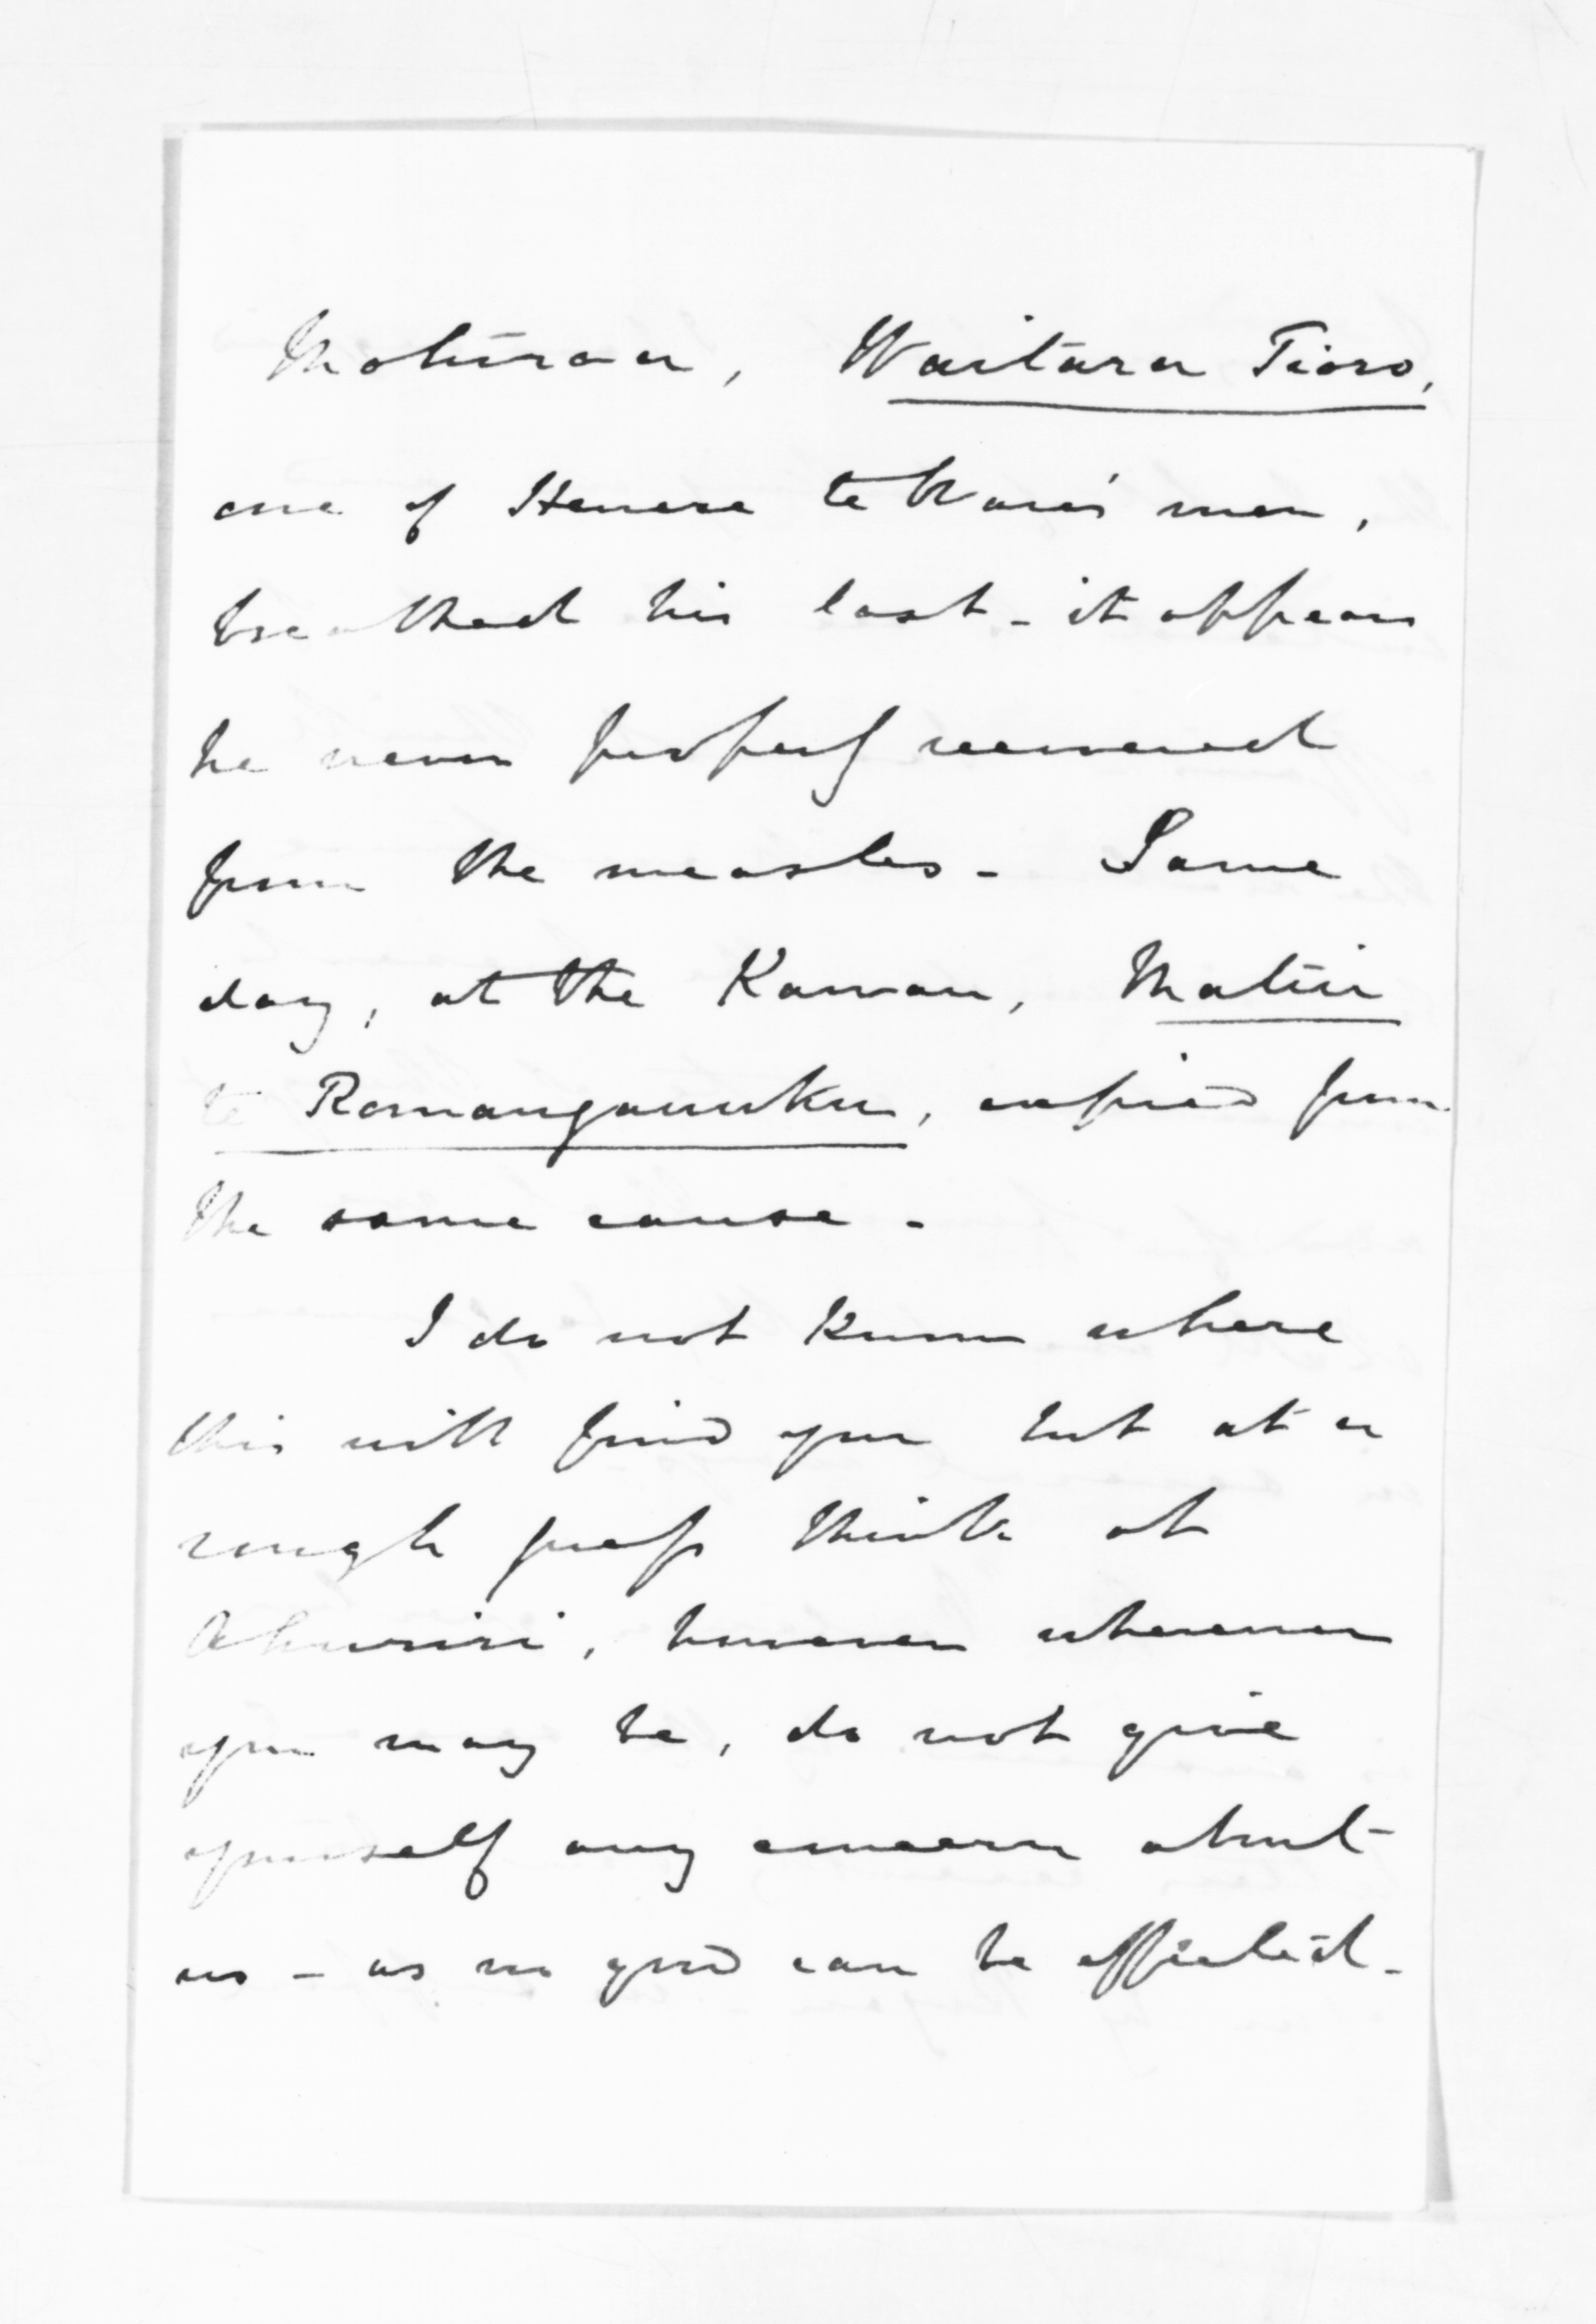 Moturoa, Waitara Tioro,
one of Henere te Ware's men,
breathed his last - it appears
he never properly recovered
from the measles - Same
day, at the Kawau, Matiu
te Ramangaunuku, expired from
the same cause -
I do not know where
this will find you but at a
rough guess think at
Ahuriri, however wherever
you may be, do not give
yourself any concern about
us - as no good can be effected -